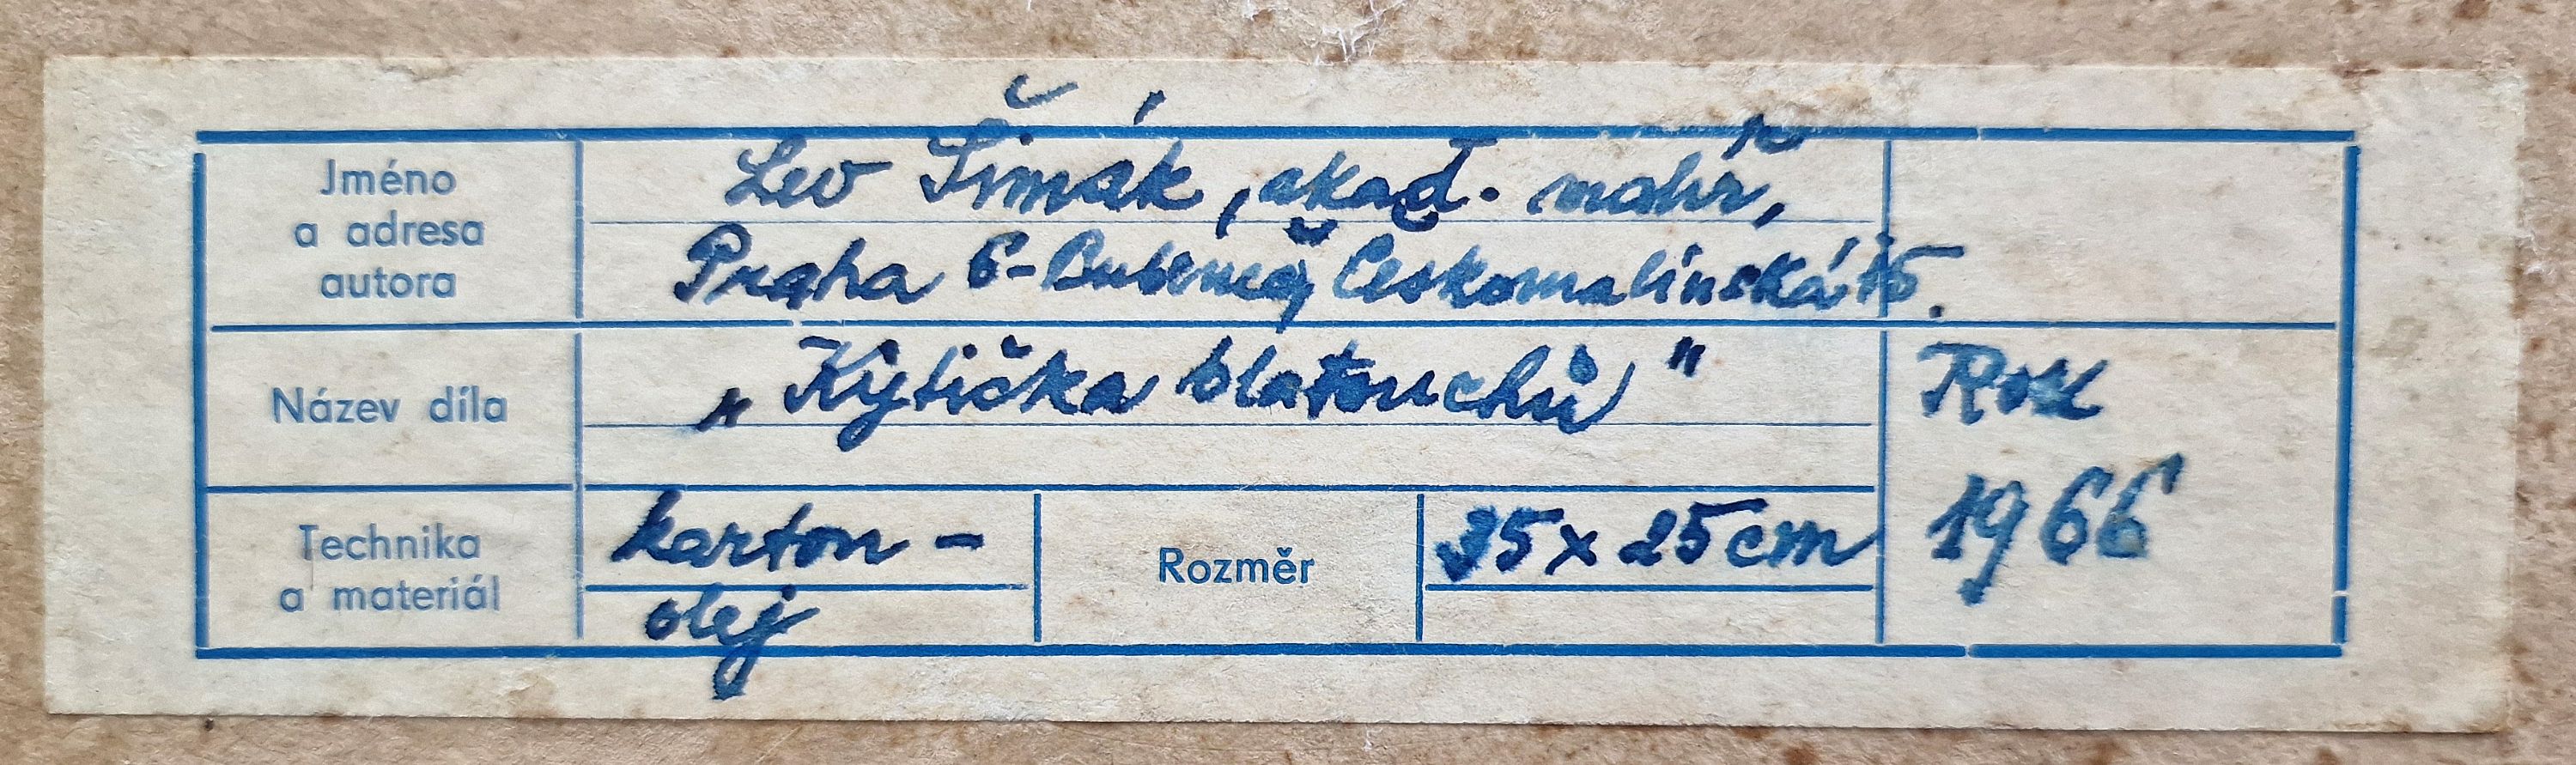 Jméno
a adresa
autora
Lev Šimák, akad. malíř,
Praha 6-Bubeneč, Českomalínská 15.
Název díla
„Kytička blatouchů"
Rok
1966
Technika
a materiál
karton -
olej
Rozměr
35 x 25 cm